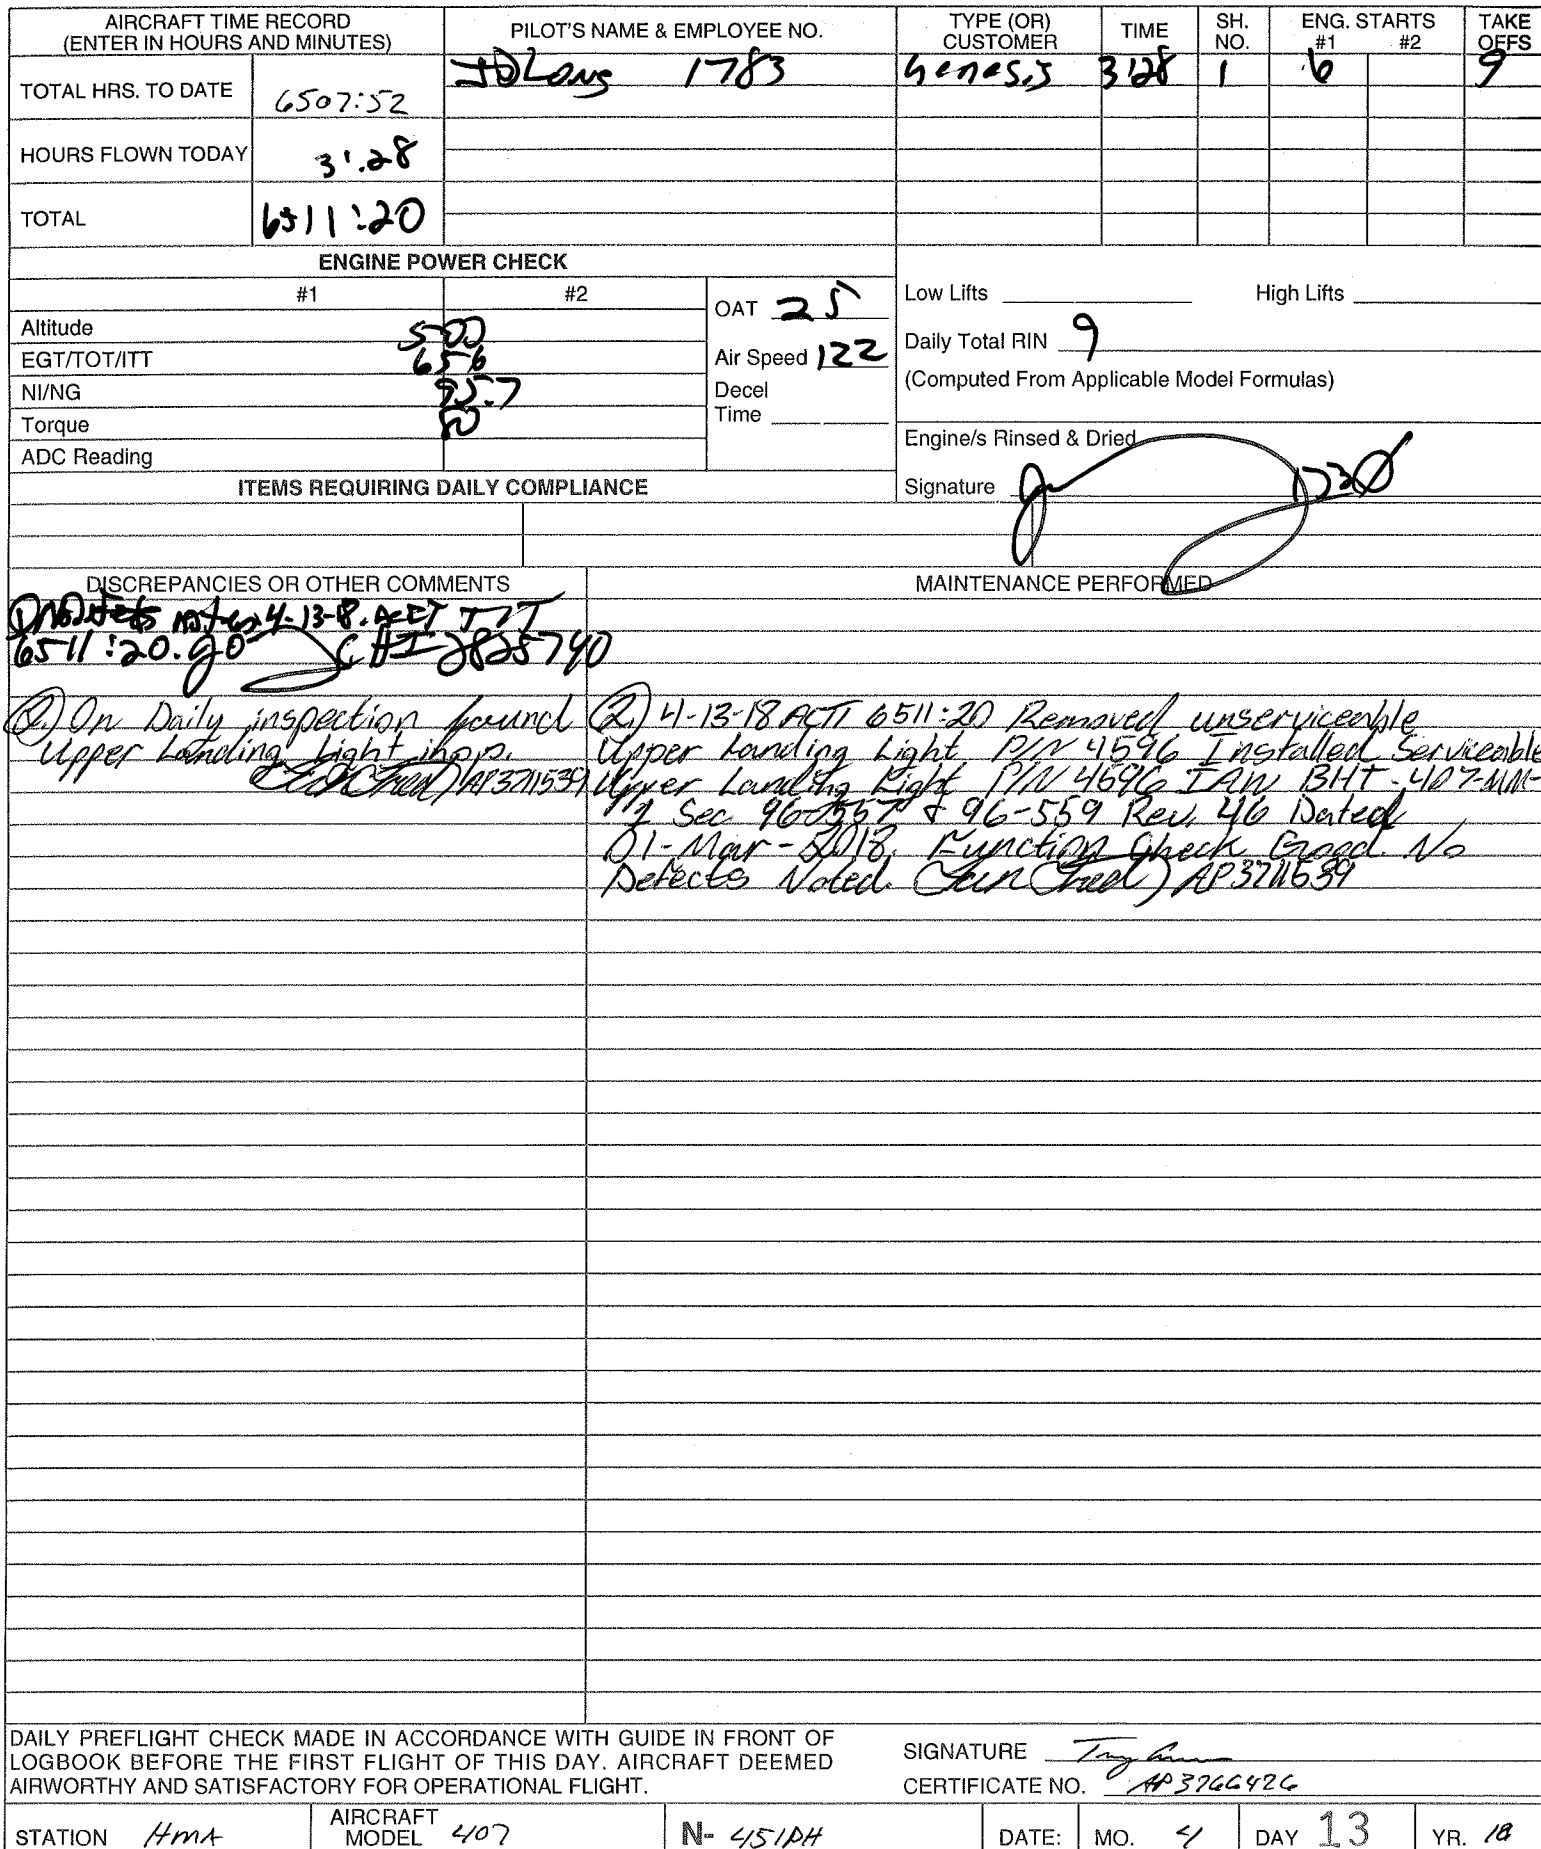 AIRCRAFT TIME RECORD
(ENTER IN HOURS AND MINUTES)
PILOT'S NAME & EMPLOYEE NO.
TYPE (OR) CUSTOMER
TIME
SH. NO.
ENG. STARTS
#1 #2
TAKE OFFS
TOTAL HRS. TO DATE 6507:52
JD Long 1783 Genesis 3:28 1 6 9
HOURS FLOWN TODAY 3:28
TOTAL 6511:20
ENGINE POWER CHECK
#1 #2
Altitude 500
EGT/TOT/ITT 656
NI/NG 95.7
Torque 80
ADC Reading
OAT 25
Air Speed 122
Decel
Time
Low Lifts High Lifts
Daily Total RIN 9
(Computed From Applicable Model Formulas)
Engine/s Rinsed & Dried
Signature
ITEMS REQUIRING DAILY COMPLIANCE
DISCREPANCIES OR OTHER COMMENTS
4-13-18.
6511:20.
2825740
(2.) On Daily inspection found
Upper Landing Light inop.
AP3711539
MAINTENANCE PERFORMED
(2.) 4-13-18 ACTT 6511:20 Removed unserviceable
Upper Landing Light P/N 4596 Installed Serviceable
Upper Landing Light P/N 4596 IAW BHT-407-MM-
Sec. 96-557 & 96-559 Rev. 46 Dated
01-Mar-2018. Function Check Good. No
Defects Noted. AP3711539
DAILY PREFLIGHT CHECK MADE IN ACCORDANCE WITH GUIDE IN FRONT OF
LOGBOOK BEFORE THE FIRST FLIGHT OF THIS DAY. AIRCRAFT DEEMED
AIRWORTHY AND SATISFACTORY FOR OPERATIONAL FLIGHT.
SIGNATURE
CERTIFICATE NO. AP3266426
STATION HMA
AIRCRAFT MODEL 407
N- 451PH
DATE: MO. 4 DAY 13 YR. 18